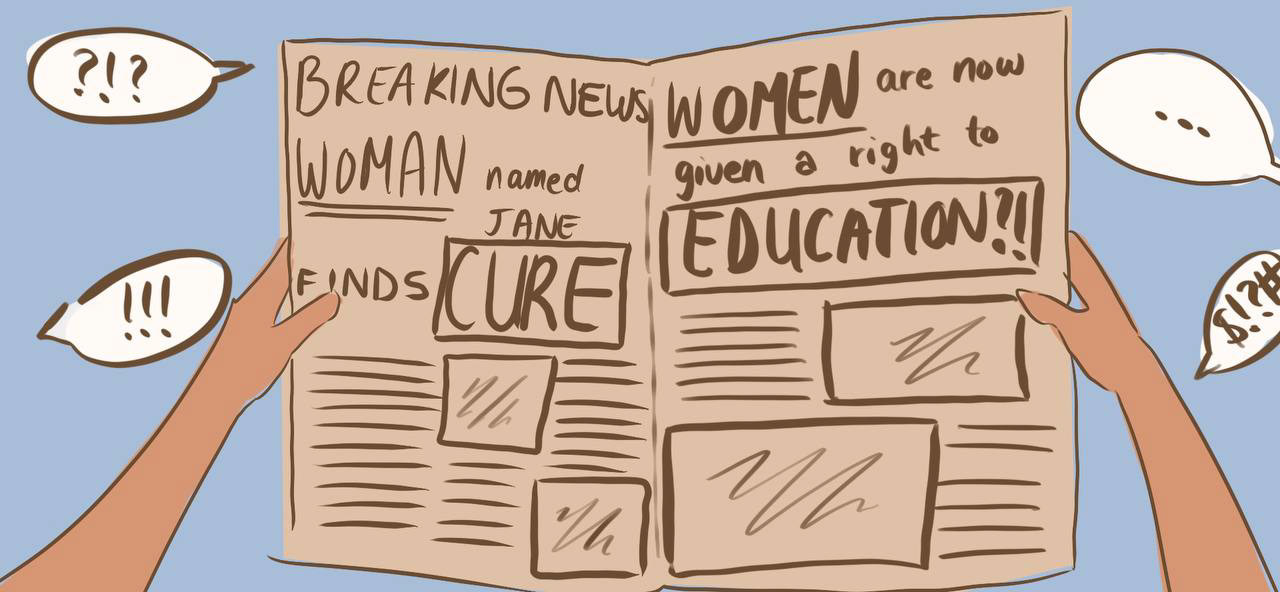 ?!?
!!!
BREAKING NEWS
WOMAN named
JANE
FINDS CURE
WOMEN are now
given a right to
EDUCATION?!!
...
$!?#